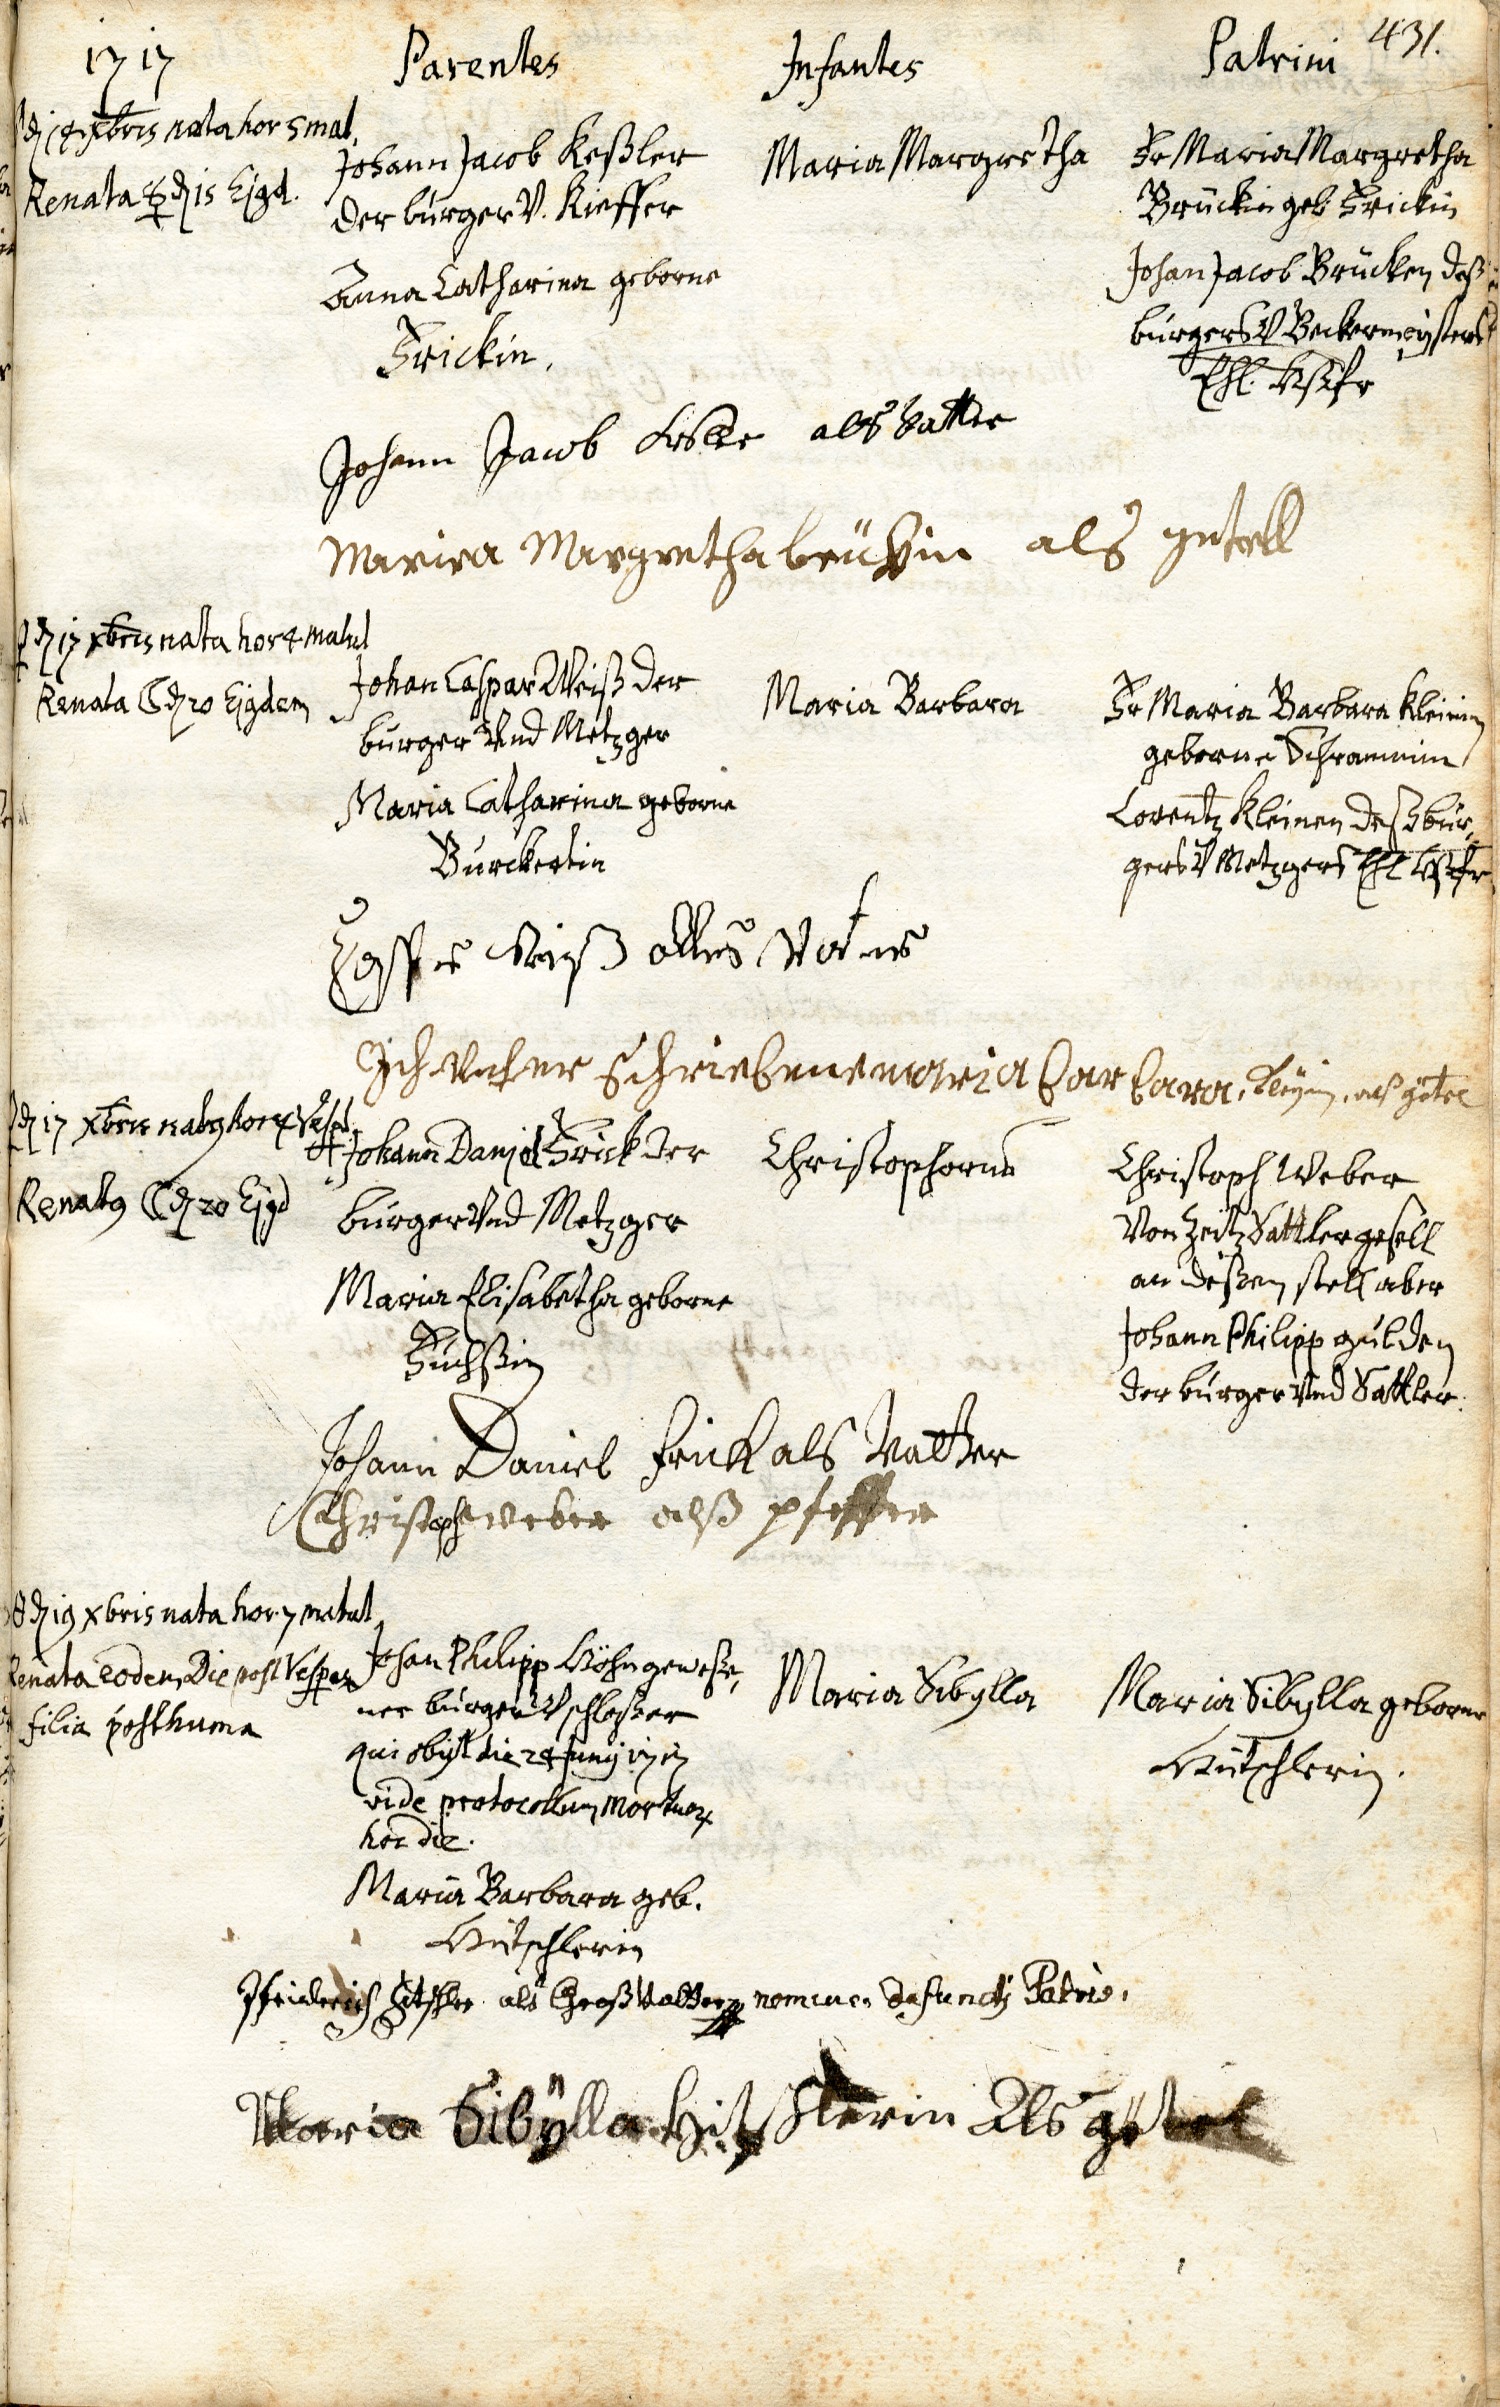 1717 Parentes Infantes Patrini 431.
d 14 xbris nata hor 5 mat.
Renata ☿ d 15 Ejgd.
Johann Jacob Keßler
der burger V. Kieffer
Anna Catharina geborne
Frickin.
Maria Margretha
Fr Maria Margretha
Brückin geb Frickin
Johan Jacob Brücken deß
burgers V Beckermeisters
Ehl. Hßfr
Johann Jacob als Vatter
Maria Margretha brückin als gettell
d 17 xbris nata hor 4 matut
Renata ☾ d 20 Ejgdem
Johan Caspar Weiß der
burger Und Metzger
Maria Catharina geborne
Burckertin
Maria Barbara
Fr Maria Barbara Kleinin
geborne Schrammin
Lorentz Kleinen deß bur-
gers V Metzgers Ehl Hßfr
Casper Weiß alles Vater
Ich Unter schriebene maria barbara, als götel
d 17 xbris natg hor 4 Vesp.
Renatg ☾ d 20 Ejgd
Johann Daniel Frick der
burger Und Metzger
Maria Elisabetha geborne
Fuchßin
Christophorus
Christoph Weber
Von Zeitz Sattlergesell
an deßen stell aber
Johann Philipp gulden
der burger Und Sattler.
Johann Daniel Frick als Vatter
Christoph weber alß pfetter
d 19 xbris nata hor 7 matut
Renata eodem Die post Vesper
filia posthuma
Johan Philipp Höhn geweße,
ner burger V schloßer
qui obijt die 24 Junij 1717
vide protocollum Mortuor
hoc die.
Maria Barbara geb.
Hütschlerin
Maria Sibylla
Maria Sibylla geborne
Hütschlerin.
Friderich Hitschler als Großvatter nomine defuncti Patris.
Maria Sibÿlla Hitschlerin Als götel